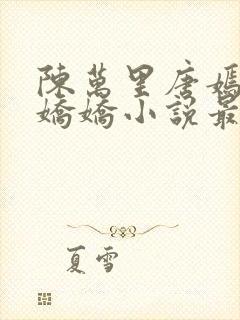 陳萬里唐嫣
嬌嬌小說最
夏雪